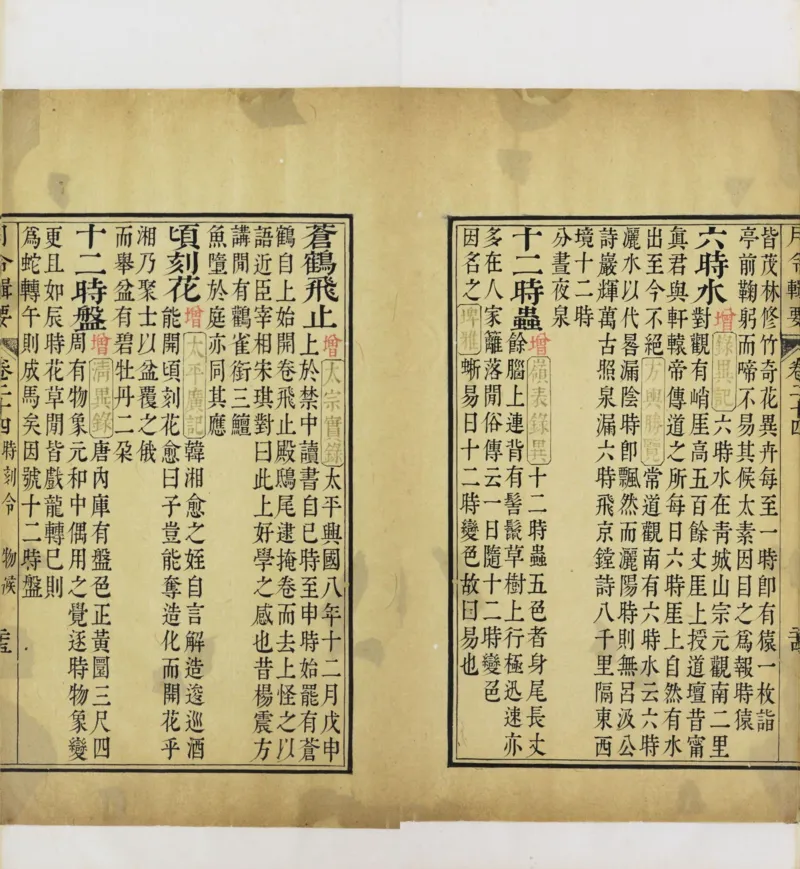 月令輯要 卷二十四
皆茂林修竹奇花異卉每至一時卽有猿一枚詣
亭前鞠躬而啼不易其候太素因目之爲報時猿
六時水 增 錄異記 六時水在靑城山宗元觀南二里
對觀有峭厓高五百餘丈厓上授道壇昔甯
眞君與軒轅帝傳道之所每日六時厓上自然有水
出至今不絕 方輿勝覽 常道觀南有六時水云六時
灑水以代晷漏陰時卽飄然而灑陽時則無呂汲公
詩巖輝萬古照泉漏六時飛京鏜詩八千里隔東西
境十二時
分晝夜泉
十二時蟲 增 嶺表錄異 十二時蟲五色者身尾長丈
餘腦上連背有髻鬣草樹上行極迅速亦
多在人家籬落閒俗傳云一日隨十二時變色
因名之 埤雅 蜥易日十二時變色故曰易也
蒼鶴飛止 增 太宗實錄 太平興國八年十二月戊申
上於禁中讀書自巳時至申時始罷有蒼
鶴自上始開卷飛止殿鴟尾逮掩卷而去上怪之以
語近臣宰相宋琪對曰此上好學之感也昔楊震方
講閒有鸛雀銜三鱣
魚墮於庭亦同其應
頃刻花 增 太平廣記 韓湘愈之姪自言解造逡巡酒
能開頃刻花愈曰子豈能奪造化而開花乎
湘乃聚士以盆覆之俄
而舉盆有碧牡丹二朵
十二時盤 增 淸異錄 唐內庫有盤色正黃圜三尺四
周有物象元和中偶用之覺逐時物象變
更且如辰時花草閒皆戲龍轉巳則
爲蛇轉午則成馬矣因號十二時盤
月令輯要 卷二十四 時刻令 物候